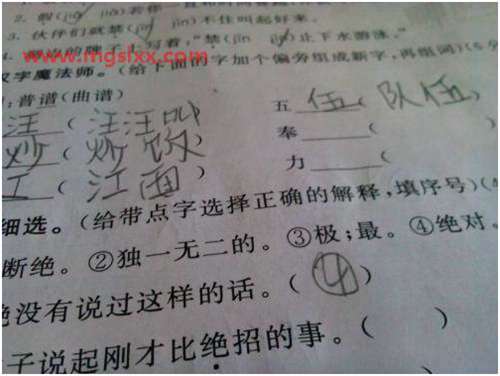 2. 假(jiǎ jià)若你
3. 伙伴们就禁(jīn jìn)不住叫起好来。
着，"禁(jīn jìn)止下水游泳。"
www.mgslxx.com
汉字魔法师。(给下面的字加个偏旁组成新字，再组词)(6分
:普谱(曲谱)
五 伍(队伍)
汪(汪汪叫
奉 (
炒(炒饭
力 (
工(江面)
细选。(给带点字选择正确的解释，填序号)(4
断绝。②独一无二的。③极；最。④绝对。
绝没有说过这样的话。(④)
子说起刚才比绝招的事。( )